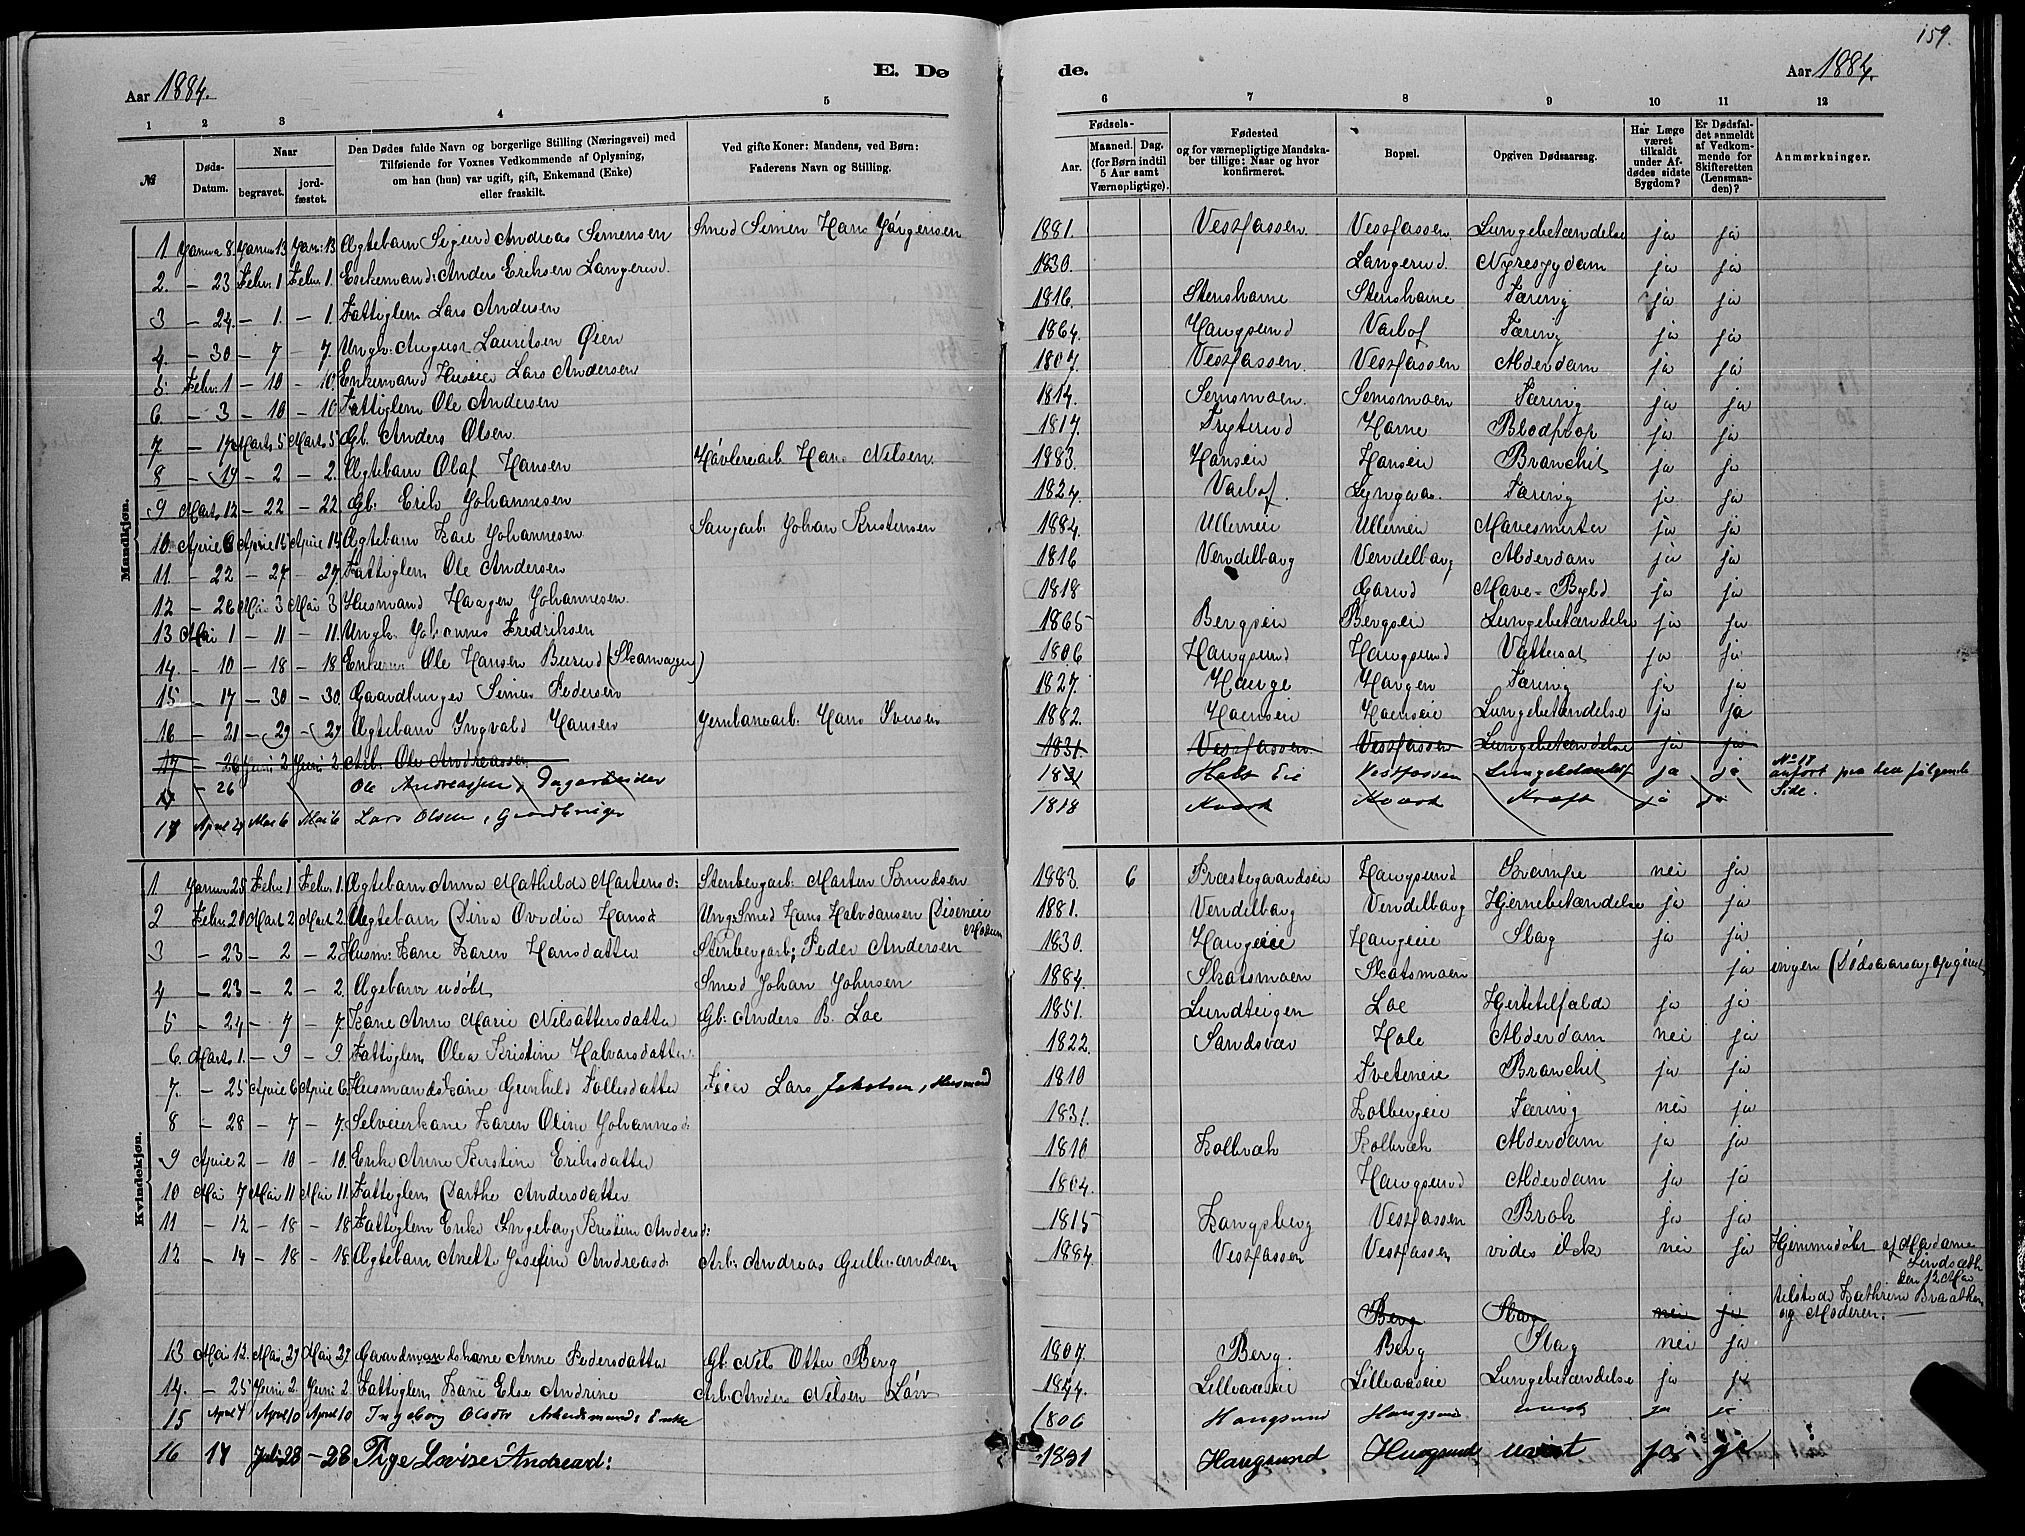 159.
E. Døde.
Aar 1884.
Aar 1884.
1 2 3 4 5 6 7 8 9 10 11 12
№
Døds-Datum.
Naar
begravet.
jordfæstet.
Den Dødes fulde Navn og borgerlige Stilling (Næringsvei) med Tilføiende for Voxnes Vedkommende af Oplysning, om han (hun) var ugift, gift, Enkemand (Enke) eller fraskilt.
Ved gifte Koner: Mandens, ved Børn: Faderens Navn og Stilling.
Fødsels-
Aar.
Maaned. Dag. (for Børn indtil 5 Aar samt Værnepligtige).
Fødested og for værnepligtige Mandskaber tillige: Naar og hvor konfirmeret.
Bopæl.
Opgiven Dødsaarsag.
Har Læge været tilkaldt under Afdødes sidste Sygdom?
Er Dødsfaldet anmeldt af Vedkommende for Skifteretten (Lensmanden)?
Anmærkninger.
Mandkjøn.
1 Janua 8. Janua 13 Janu: 13 Ægtebarn Sigurd Andreas Simensen Smed Simen Hans Jørgensen 1881. Vestfassen Vestfassen Lungebetændelse ja ja
2. – 23 Febr. 1 Febr. 1. Enkemand: Anders Eriksen Langerud 1830. Langerud Nyresygdam ja ja
3 – 24. – 1. – 1. Fattiglem Lars Andersen 1816. Stenshorne Stenshorne Tæring ja ja
4. – 30 – 7 – 7. Ungk. August Lauritsen Øien 1864. Haugsund Varlof Tæring ja ja
5. Febr. 1 – 10 – 10. Enkemand Huseier Lars Andersen 1807. Vestfassen Vestfassen Alderdam ja ja
6 – 3 – 10 – 10 Fattiglem Ole Andersen 1814. Semsmoen. Semsmoen Tæring ja ja
7 – 17 Marts 5 Marts 5 Gb. Anders Olsen 1817. Frygterud Horne Blodprop ja ja
8 – 17 – 2 – 2. Ægtebarn Olaf Hansen Høvlerearb. Hans Nilsen. 1883. Hanseie Hanseie Branchit ja ja
9 Marts 12 – 22 – 22. Gb. Erik Johannesen 1824. Varlof. Lyngaas. Tæring ja ja
10. April 6 April 15 April 15 Ægtebarn Karl Johannesen Saugarb. Johan Kristensen 1884. Ullerneie Ullerneie Mavesmerter ja ja
11. – 22 – 27 – 27. Fattiglem Ole Andersen 1816 Vendelborg Vendelborg Alderdam ja ja
12 – 26 Mai 3 Mai 3 Husmand Haagen Johannesen. 1818 Garud Mave-Byld ja ja
13 Mai 1 – 11 – 11. Ungk. Johannes Fredriksen 1865 Bergseie Bergseie Lungebetændelse ja ja
14. – 10 – 18 – 18 Enkem: Ole Hansen Buerud (Skomager) 1806 Haugsund Haugsund Vattersot ja ja
15 – 17 – 30 – 30. Gaardbruger Simen Pedersen 1827. Hauge Haugen Tæring ja ja
16 – 21 – 29 – 29 Ægtebarn Ingvald Hansen Jernbanearb. Hans Iversen 1882. Hoenseie Hoenseie Lungebetændelse ja ja
17 – 26 Juni 2 Juni 2. Arb. Ole Andreassen 1831. Vestfassen Vestfassen Lungebetændelse ja ja
17 – 26 Ole Andreassen, Dagarbeider 1831 Eie Vestfassen Lungebetændelse ja ja
No 18 anført paa den følgende Side.
18 April 29 Mai 6 Mai 6 Lars Olsen, Gaardbruger 1818 Kræft ja ja
Kvindekjøn.
1 Januar 25 Febr. 1 Febr. 1. Ægtebarn Anna Mathilde Martensd: Stenbergarb. Marten Knudsen 1883. 6 Præstegaardseie Haugsund Krampe nei ja
2 Febr. 20 Mart. 2 Mart. 2. Ægtebarn Dina Ovidia Hansd: Ung: Smed Hans Halvdansen Diseneie Modum 1881. Vendelborg Vendelborg Hjernebetændelse ja ja
3 – 23 – 2 – 2. Husm: Kane Karen Hansdatter Stenbergarb; Peder Andersen 1830. Haugeeie Haugeie Slag ja ja
4 – 23 – 2 – 2. Ægebarn udøbt Smed Johan Johnsen 1884. Skotsmoen Skotsmoen ja ingen (Dødsaarsag opgivet
5 – 24 – 7 – 7. Kane Anne Marie Nilsattersdatter Gb: Anders B. Loe 1851. Lundteigen Loe Hjertetilfælde ja ja
6. Marts 1. – 9 – 9. Fattiglem Olea Kristine Halvorsdatter. 1822. Sandsvær Hole Alderdam nei ja
7. – 25 April 6 April 6. Husmandskane Gunhild Tollesdatter Eier Lars Jakobsen, Husmand 1810 Tveteneie Branchit ja ja
8 – 28 – 7 – 7. Selveierkane Karen Oline Johannesd: 1831. Kolbergeie Tæring nei ja
9 April 2 – 10 – 10. Enke Anne Kirstine Eriksdatter 1810 Kolbræk Kolbræk Alderdam ja ja
10 Mai 7 Mai 11 Mai 11. Fattiglem Dorthe Andersdatter 1804. Haugsund Alderdam ja ja
11 – 12 – 18 – 18 Fattiglem Enke Ingeborg Kristine Andersd: 1815 Kongsberg Vestfassen Brok ja ja
12 – 14 – 18 – 18. Ægtebarn Anette Josefine Andreasd: Arb: Andreas Gulbrandsen 1884. Vestfassen Vestfassen vides ikke nei ja Hjemmedøbt af Madame Lindsæth den 12 Mai tilstede Kathrine Braathen og Moderen.
Berg Slag nei ja
13 Mai 12. Mai 29 Mai 29 Gaardmandskane Anne Pedersdatter Gb. Nils Otter Berg 1807. Berg. Berg Slag nei ja
14. – 25 Juni 2. Juni 2. Fattiglem Kane Else Andrine Arb: Anders Nilsen Lørr 1844. Lilleaaseie Lilleaaseie Lungebetændelse ja ja
15 April 4 April 10 April 10 Ingeborg Olsdtr Arbeidsmands Enke 1806 Haugsund Haugsund ja ja
16 17 Juli 28 – 28 Pige Lovise Andreasd: 1831 Haugsund Haugsund uvist ja ja